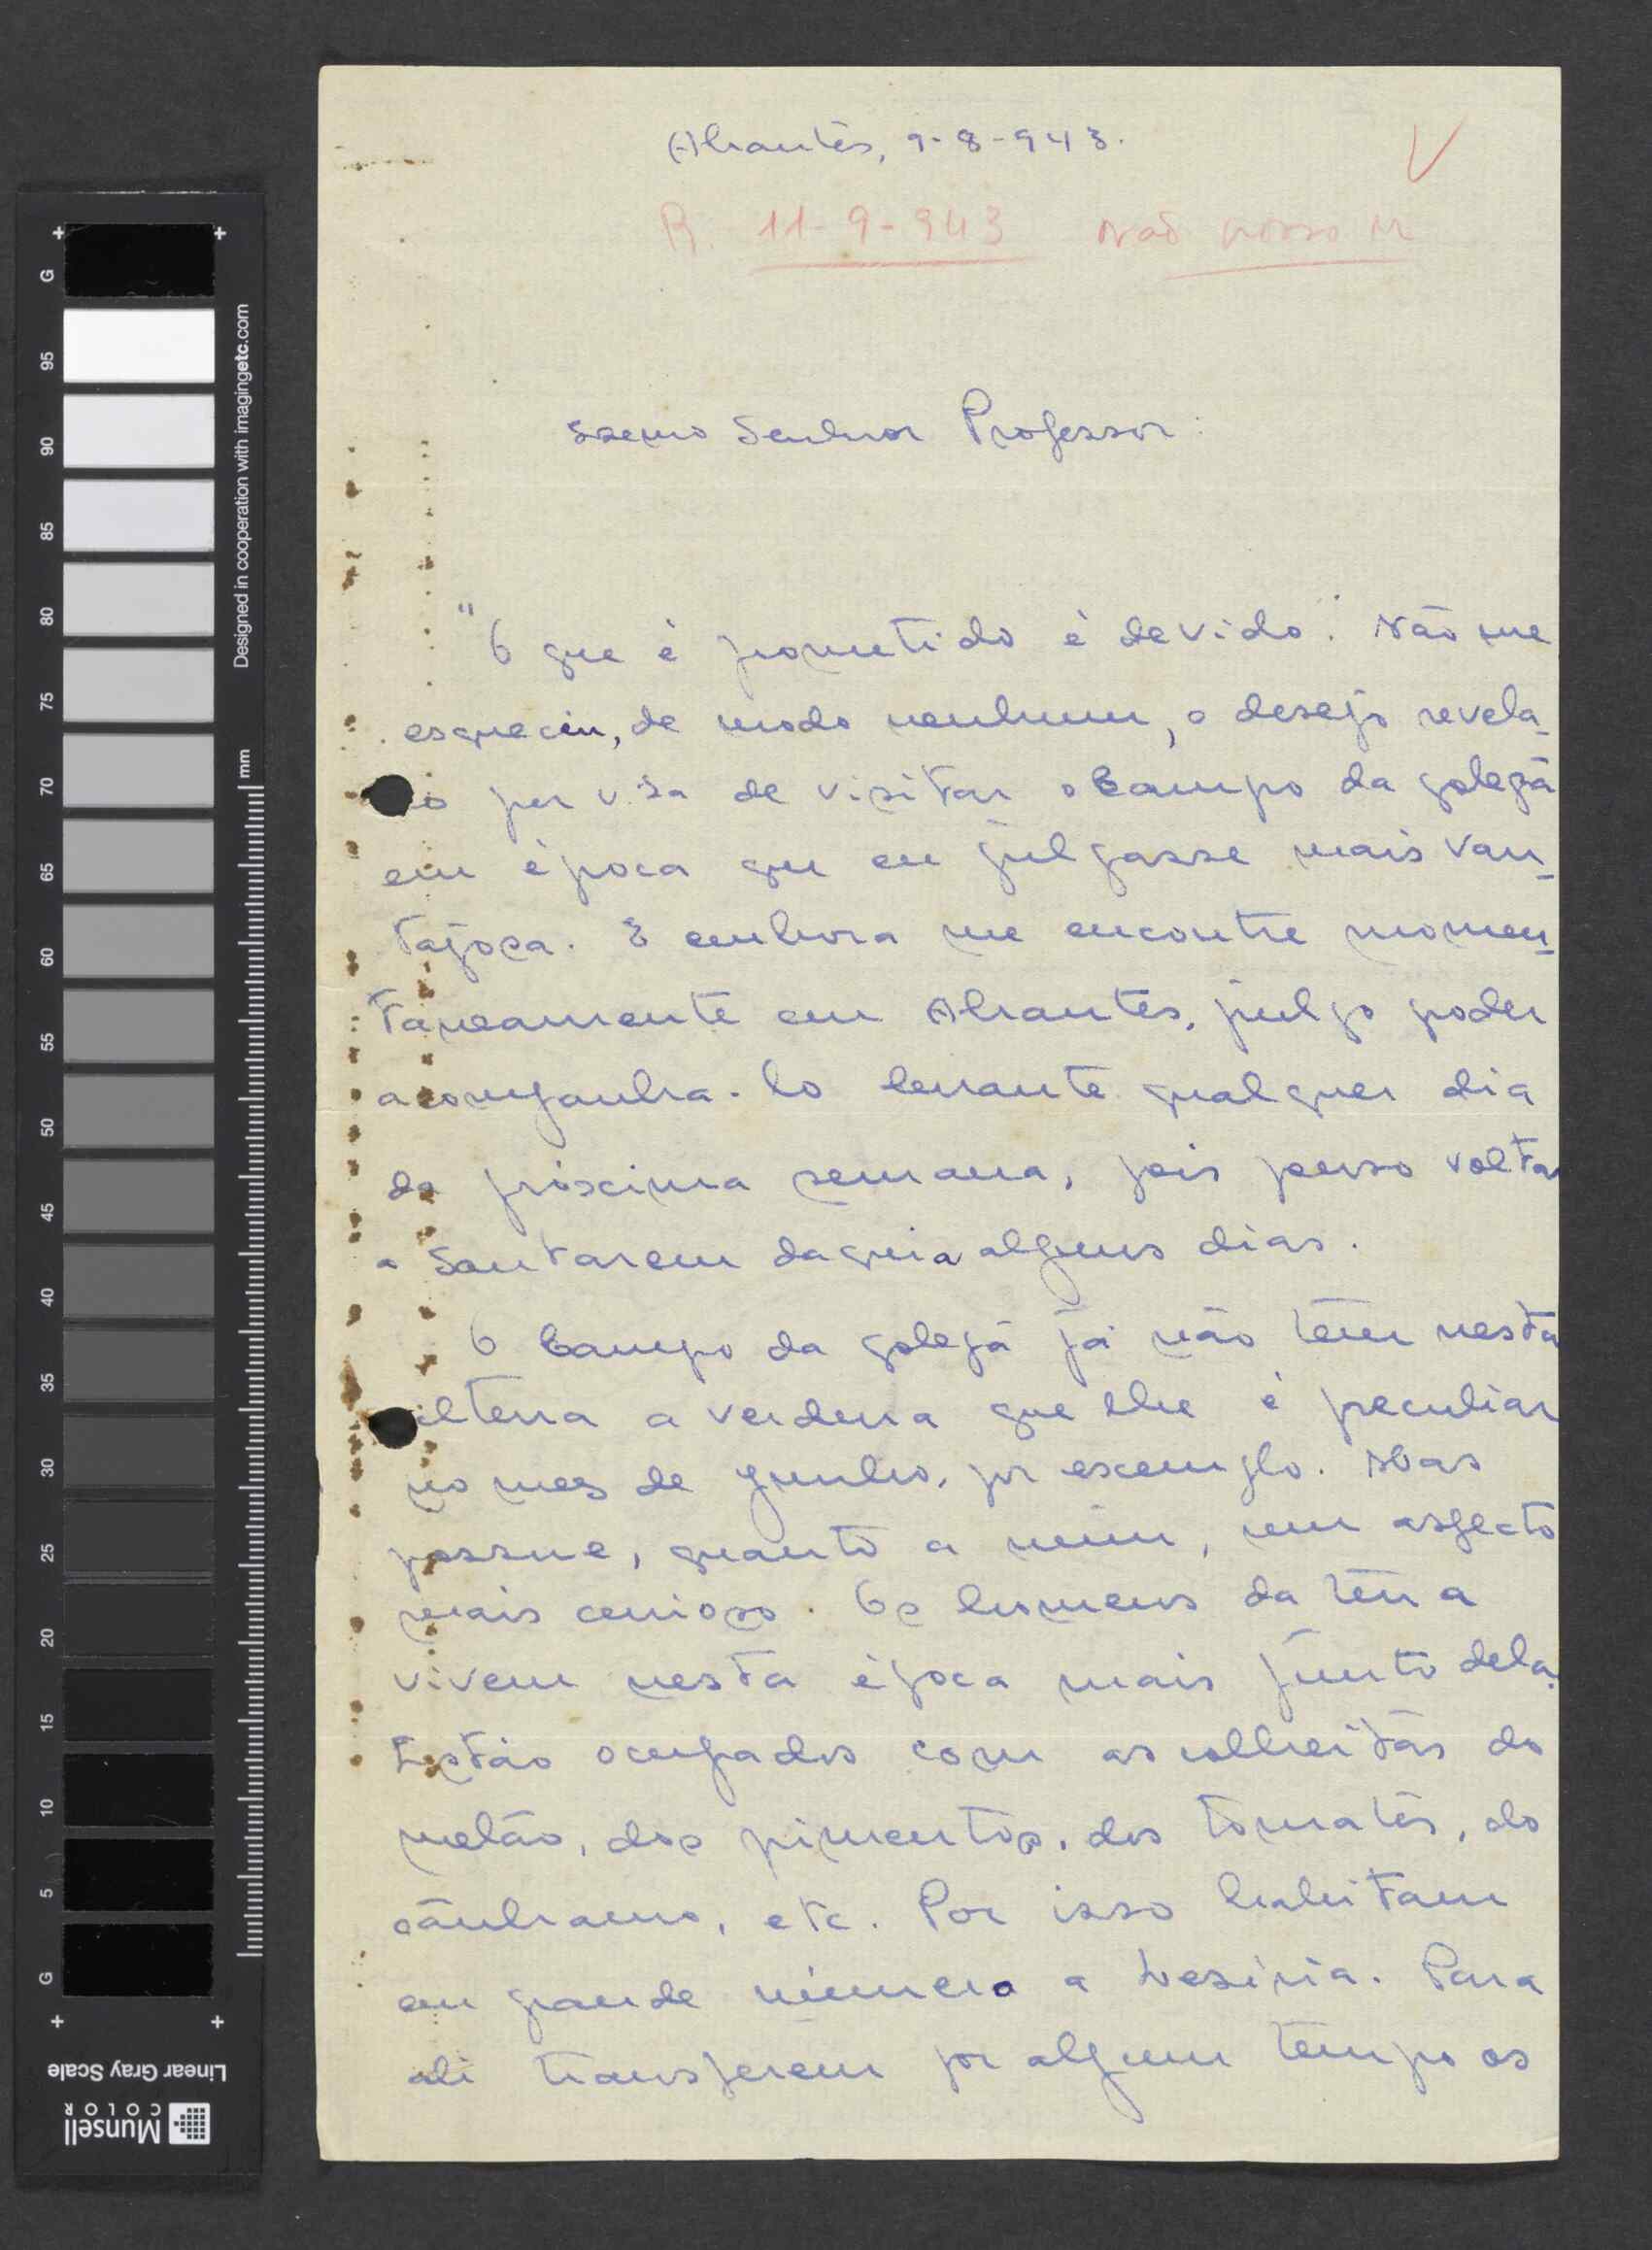 Abrantes, 9-8-943.
V
R. 11-9-943 Não posso ir
Exmo Senhor Professor:
"O que é prometido é devido". Não me
esqueceu, de modo nenhum, o desejo revela-
do por V. Sa de visitar o Campo da golegã
em época que eu julgasse mais van-
tajosa. E embora me encontre momen-
taneamente em Abrantes, julgo poder
acompanha-lo durante qualquer dia
da próxima semana, pois penso voltar
a Santarem daqui a alguns dias.
O Campo da golegã já não tem nesta
altura a verdura que lhe é peculiar
no mes de Junho, por exemplo. Mas
possue, quanto a mim, um aspecto
mais curioso. Os homens da terra
vivem nesta época mais junto dela.
Estão ocupados com as colheitas do
melão, dos pimentos, dos tomates, do
cânhamo, etc. Por isso habitam
em grande número a Lesiria. Para
ali transferem por algum tempo os
G 95 90 85 80 75 70 65 60 55 50 45 40 35 30 25 20 15 10 5 G
Designed in cooperation with imagingetc.com
mm
Linear Gray Scale
Munsell
COLOR